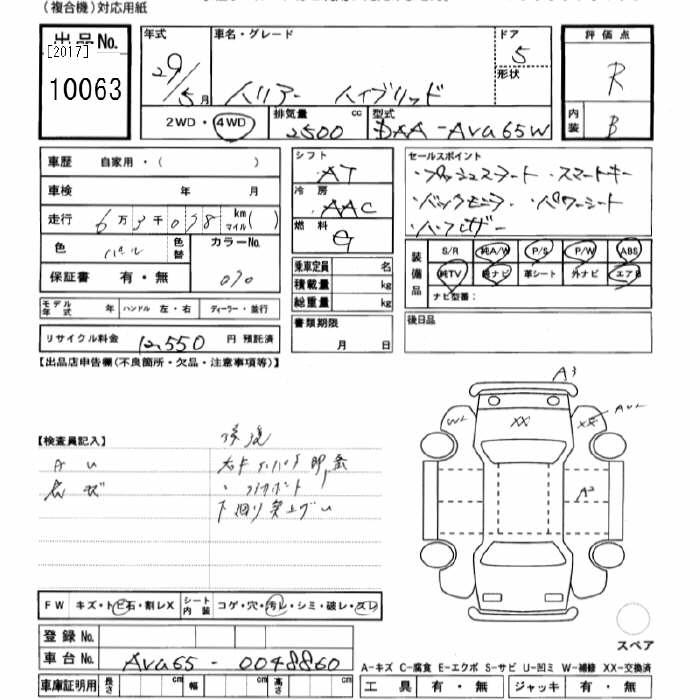 (複合機)対応用紙
出品No.
[2017]
10063
年式
29/5月
車名・グレード
ハリアー ハイブリッド
ドア
5
形状
評価点
R
内装
B
2WD・4WD
排気量 cc
2500
型式
DAA-AVU65W
車歴 自家用・( )
車検 年 月
走行 6万3千078 km マイル( )
色 パール
色替
カラーNo.
070
保証書 有・無
シフト
AT
冷房
AAC
燃料
G
乗車定員 名
積載量 kg
総重量 kg
セールスポイント
・プッシュスタート ・スマートキー
・バックモニター ・パワーシート
装備品
S/R 純A/W P/S P/W ABS
純TV 純ナビ 革シート 外ナビ エアB
ナビ型番:
モデル年式 年 ハンドル 左・右 ディーラー・並行
リサイクル料金 12,550 円 預託済
書類期限
月 日
後日品
【出品店申告欄(不良箇所・欠品・注意事項等)】
【検査員記入】
A U
下廻り突上げU
A3
W2
XX
XX
A2
FW キズ・トビ石・割レX
シート内装 コゲ・穴・汚レ・シミ・破レ・スレ
登録No.
車台No. AVU65-0048860
車庫証明用 長さ cm 幅 cm 高さ cm
スペア
A-キズ C-腐食 E-エクボ S-サビ U-凹ミ W-補修 XX-交換済
工具 有・無 ジャッキ 有・無